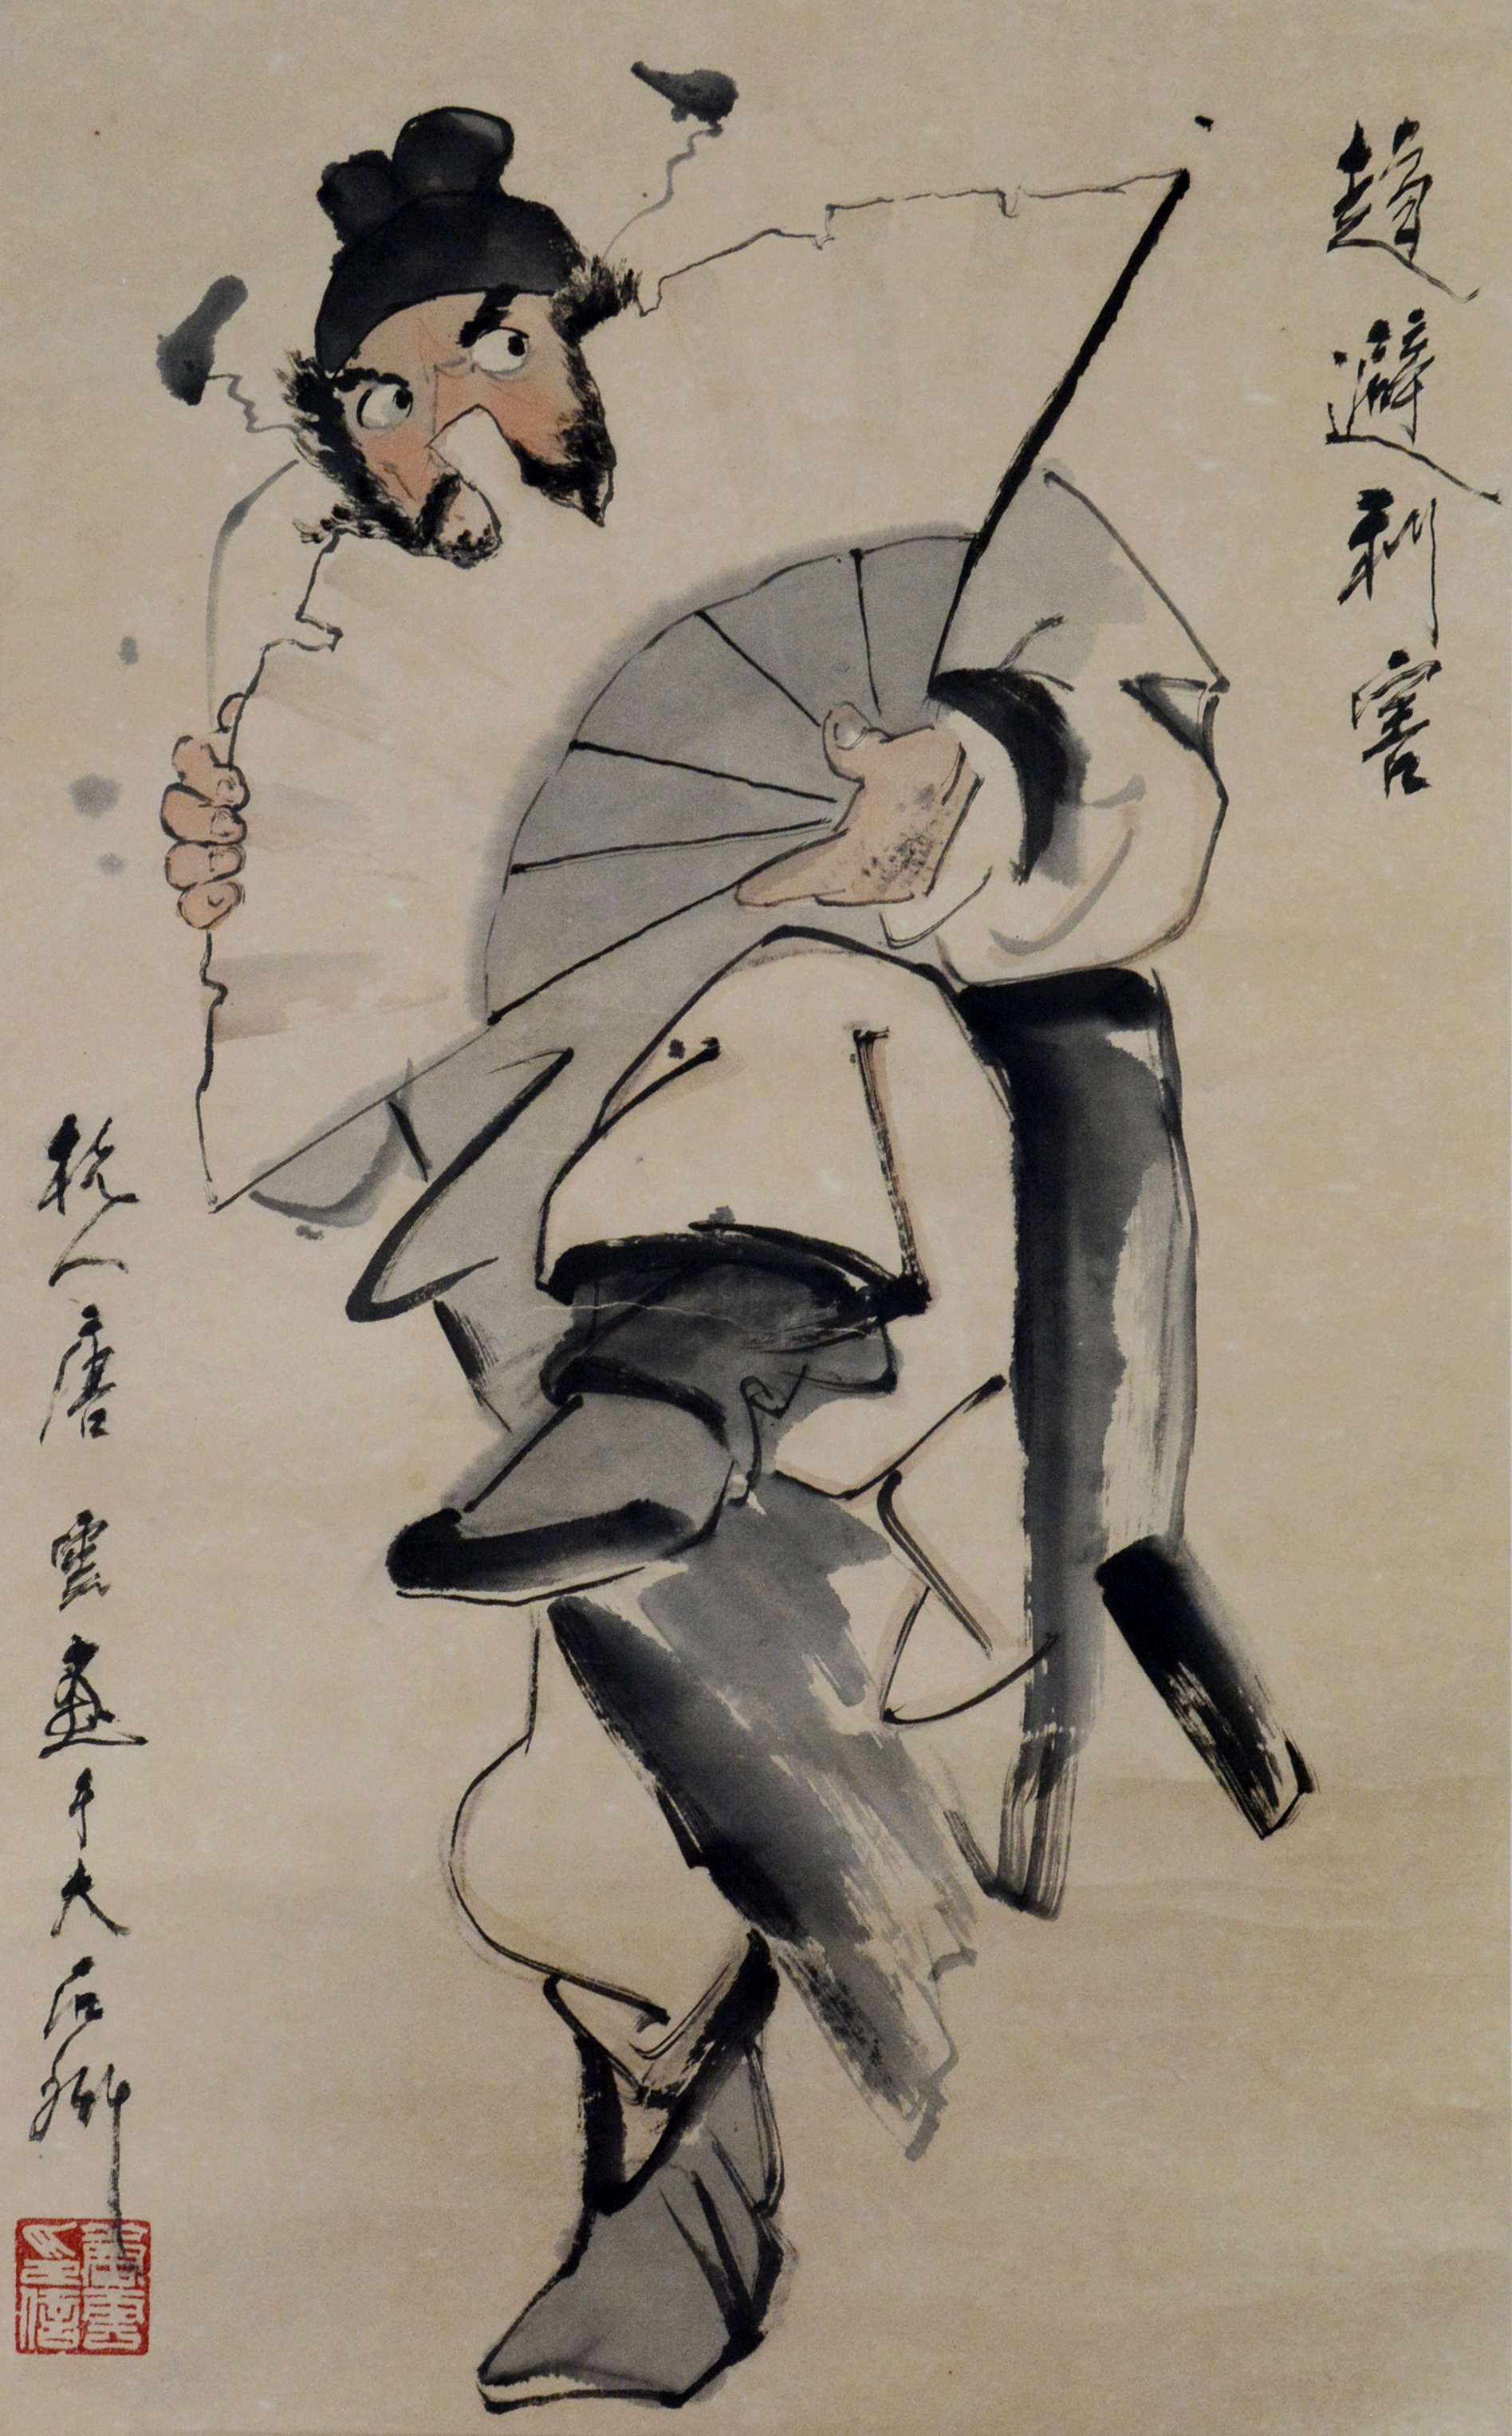 趨避利害
杭人唐雲畫于大石齋
唐雲印信